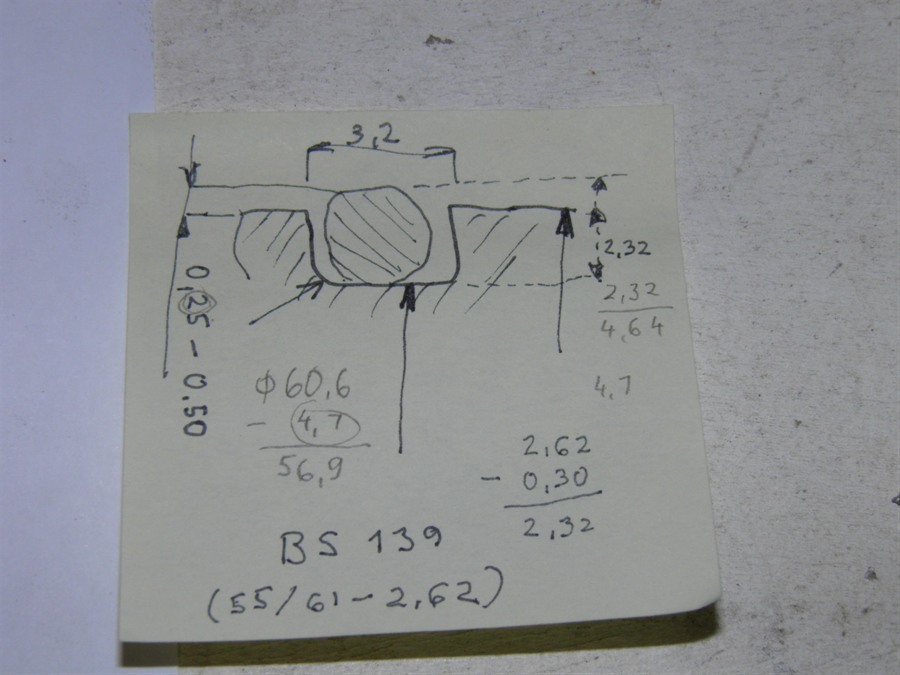 3,2
2,32
2,32
4,64
0,25 - 0,50
4,7
φ60,6
- 4,7
56,9
2,62
- 0,30
2,32
BS 139
(55/61-2,62)